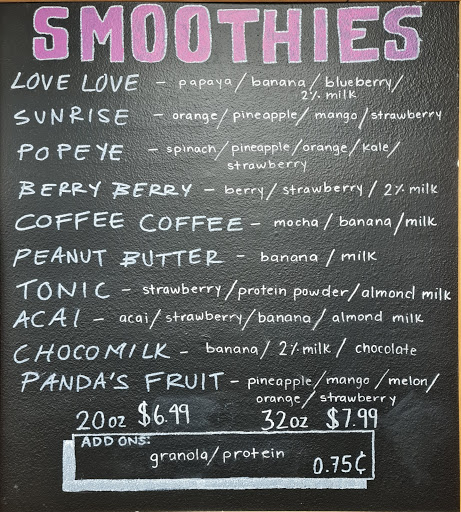 SMOOTHIES
LOVE LOVE - papaya/banana/blueberry/
2% milk
SUNRISE - orange/pineapple/mango/strawberry
POPEYE - spinach/pineapple/orange/kale/
strawberry
BERRY BERRY - berry/strawberry/2% milk
COFFEE COFFEE - mocha/banana/milk
PEANUT BUTTER - banana/milk
TONIC - strawberry/protein powder/almond milk
ACAI - acai/strawberry/banana/almond milk
CHOCOMILK - banana/2% milk/chocolate
PANDA'S FRUIT - pineapple/mango/melon/
orange/strawberry
20oz $6.99 32oz $7.99
ADD ONS:
granola/protein 0.75¢